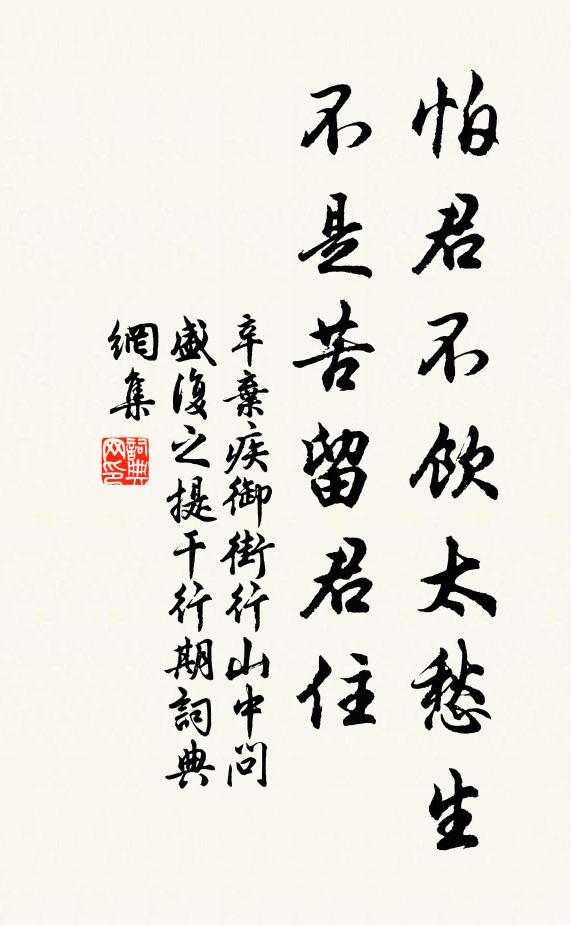 怕君不飲太愁生
不是苦留君住
辛棄疾御街行山中問
盛復之提干行期詞典
網集
詞典網印